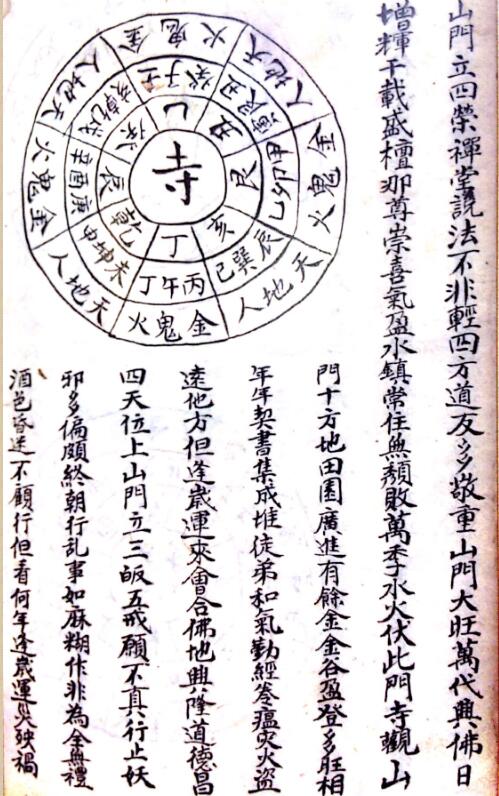 山門立四榮禪堂說法不非輕四方道友多敬重山門大旺萬代興佛日
增輝千載盛檀那尊崇喜氣盈水鎮常住無頹敗萬季水火伏此門寺觀山
門十方地田園廣進有餘金金谷盈登多旺相
年年契書集成堆徒弟和氣勤經卷瘟灾火盜
遠他方但逢歲運來會合佛地興隆道德昌
四天位上山門立三皈五戒願不真行止妖
邪多偏頗終朝行乱事如麻糊作非為全無禮
酒色昏迷不顧行但看何年逢歲運災殃禍
寺
丁
乾
辰
戌
乙
丑
艮
亥
丙午丁
未坤申
庚酉辛
戌乾亥
壬子癸
丑艮寅
甲卯乙
辰巽巳
金鬼火
天地人
金鬼火
天地人
金鬼火
天地人
金鬼火
天地人